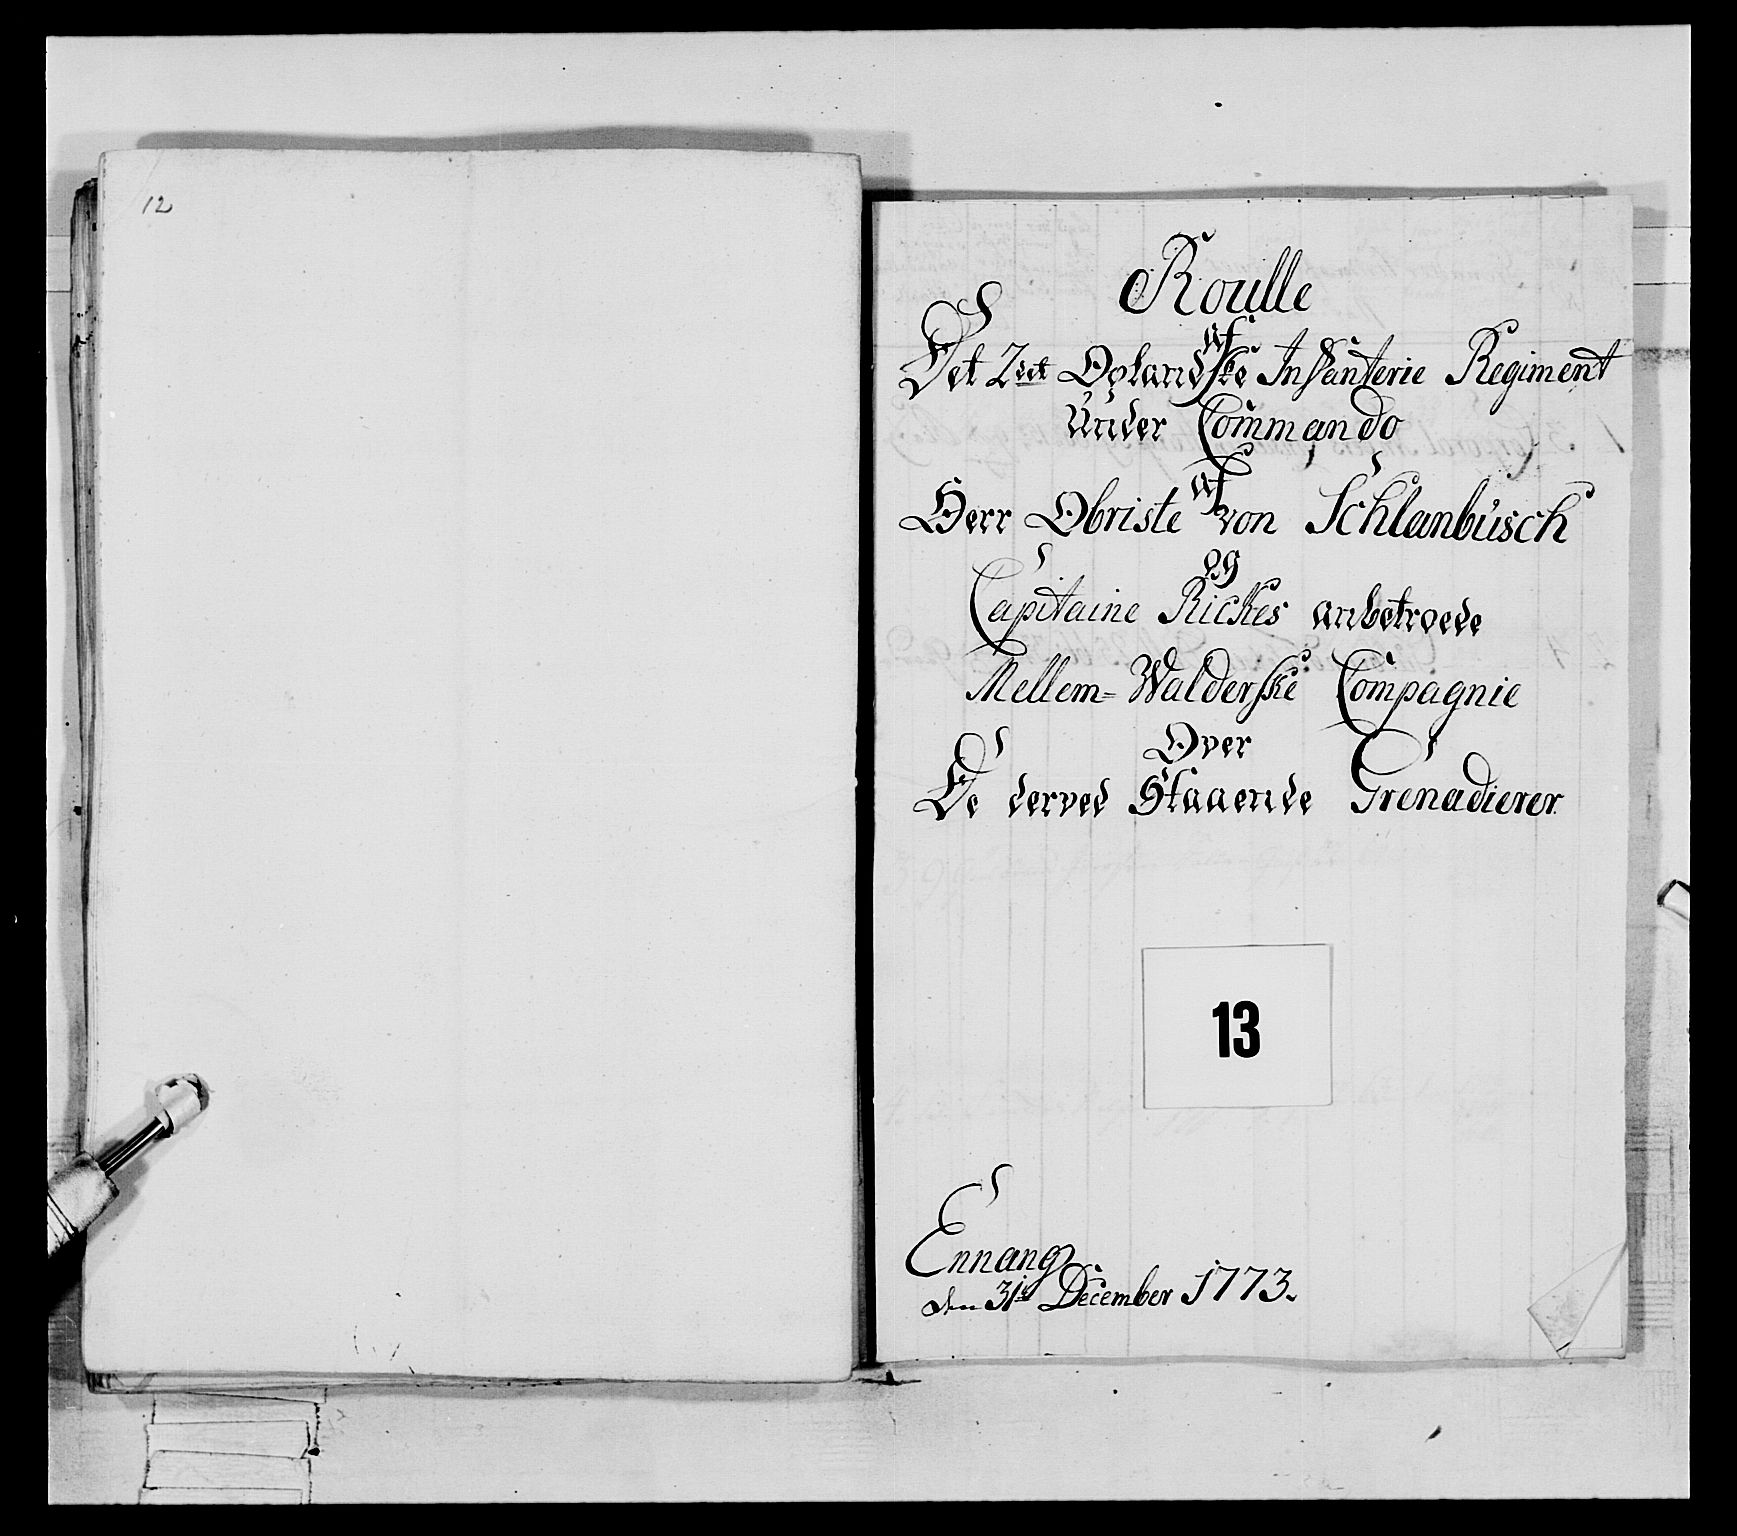 12
Roulle
af
Det 2det Oplandske Infanterie Regiment
Under Commando
af
Herr Obriste von Schlanbusch
og
Capitaine Rickes anbetroede
Mellem=Walderske Compagnie
Over
De derved Staaende Grenadierer.
13
Ennang
den 31te December 1773.